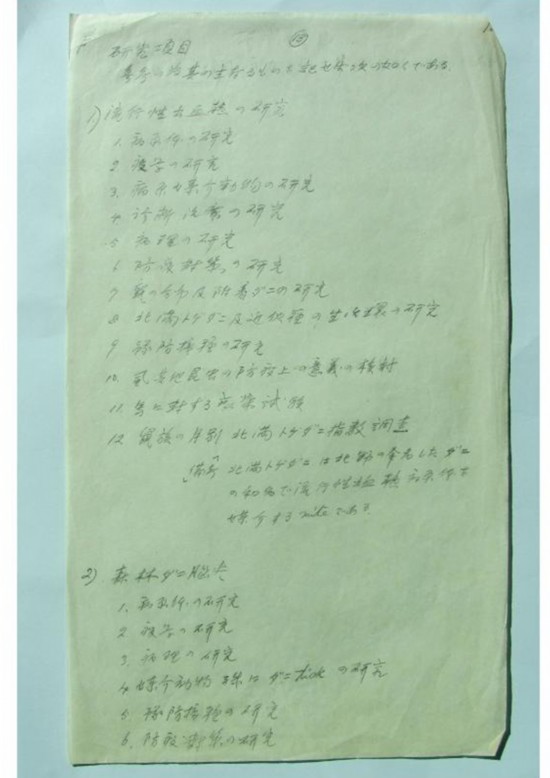 ⑬
研究項目
1) 流行性出血熱の研究
1. 病原体の研究
2 疫学の研究
3. 病原媒介動物の研究
4 診断治療の研究
5 病理の研究
6 防疫対策の研究
7 鼠の分布及附着ダニの研究
8 北満トゲダニ及近似種の生活環の研究
9 予防接種の研究
10. 昆虫の防疫上の意義の検討
11. 馬に対する感染試験
12 鼠族の月別北満トゲダニ指数調査
備考 北満トゲダニは北野の命名したダニ
の和名で流行性出血熱病原体を
媒介するmiteである
2) 森林ダニ脳炎
1. 病原体の研究
2 疫学の研究
3. 病理の研究
4 媒介動物 ダニtickの研究
5 予防接種の研究
6. 防疫対策の研究